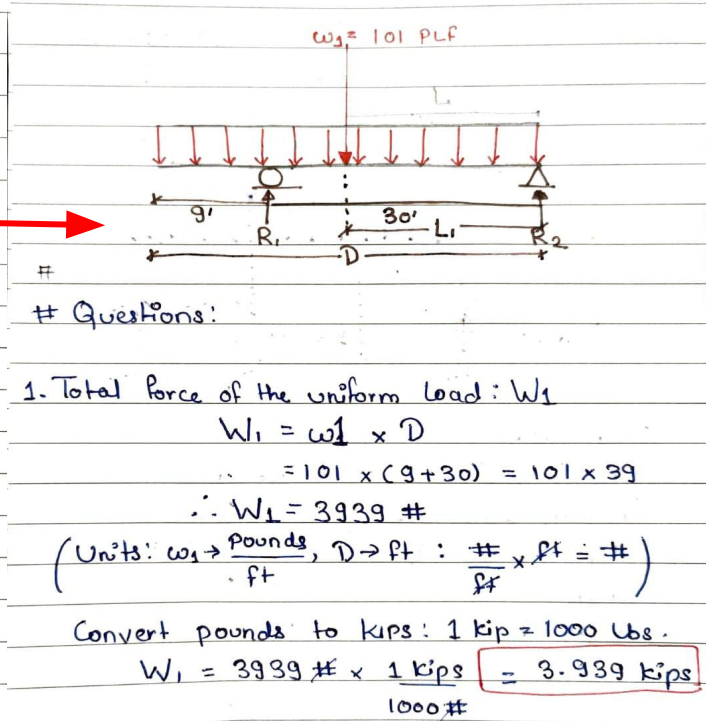 ω1 = 101 PLF
L
9'
30'
R1
L1
R2
D
#
# Questions:
1. Total force of the uniform load: W1
W1 = ω1 × D
= 101 × (9+30) = 101 × 39
∴ W1 = 3939 #
(Units: ω1 → pounds/ft, D → ft : #/ft × ft = #)
Convert pounds to kips: 1 kip = 1000 lbs.
W1 = 3939 # × 1 kips/1000 # = 3.939 kips